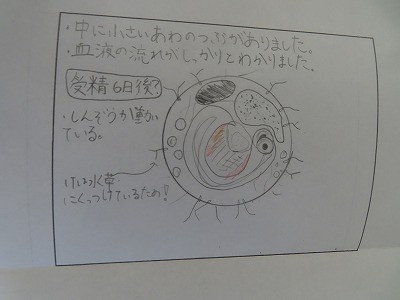 ・中に小さいあわのつぶがありました。
・血液の流れがしっかりとわかりました。
受精6日後?
・しんぞうが動い
ている。
けは水草
にくっつけているため!